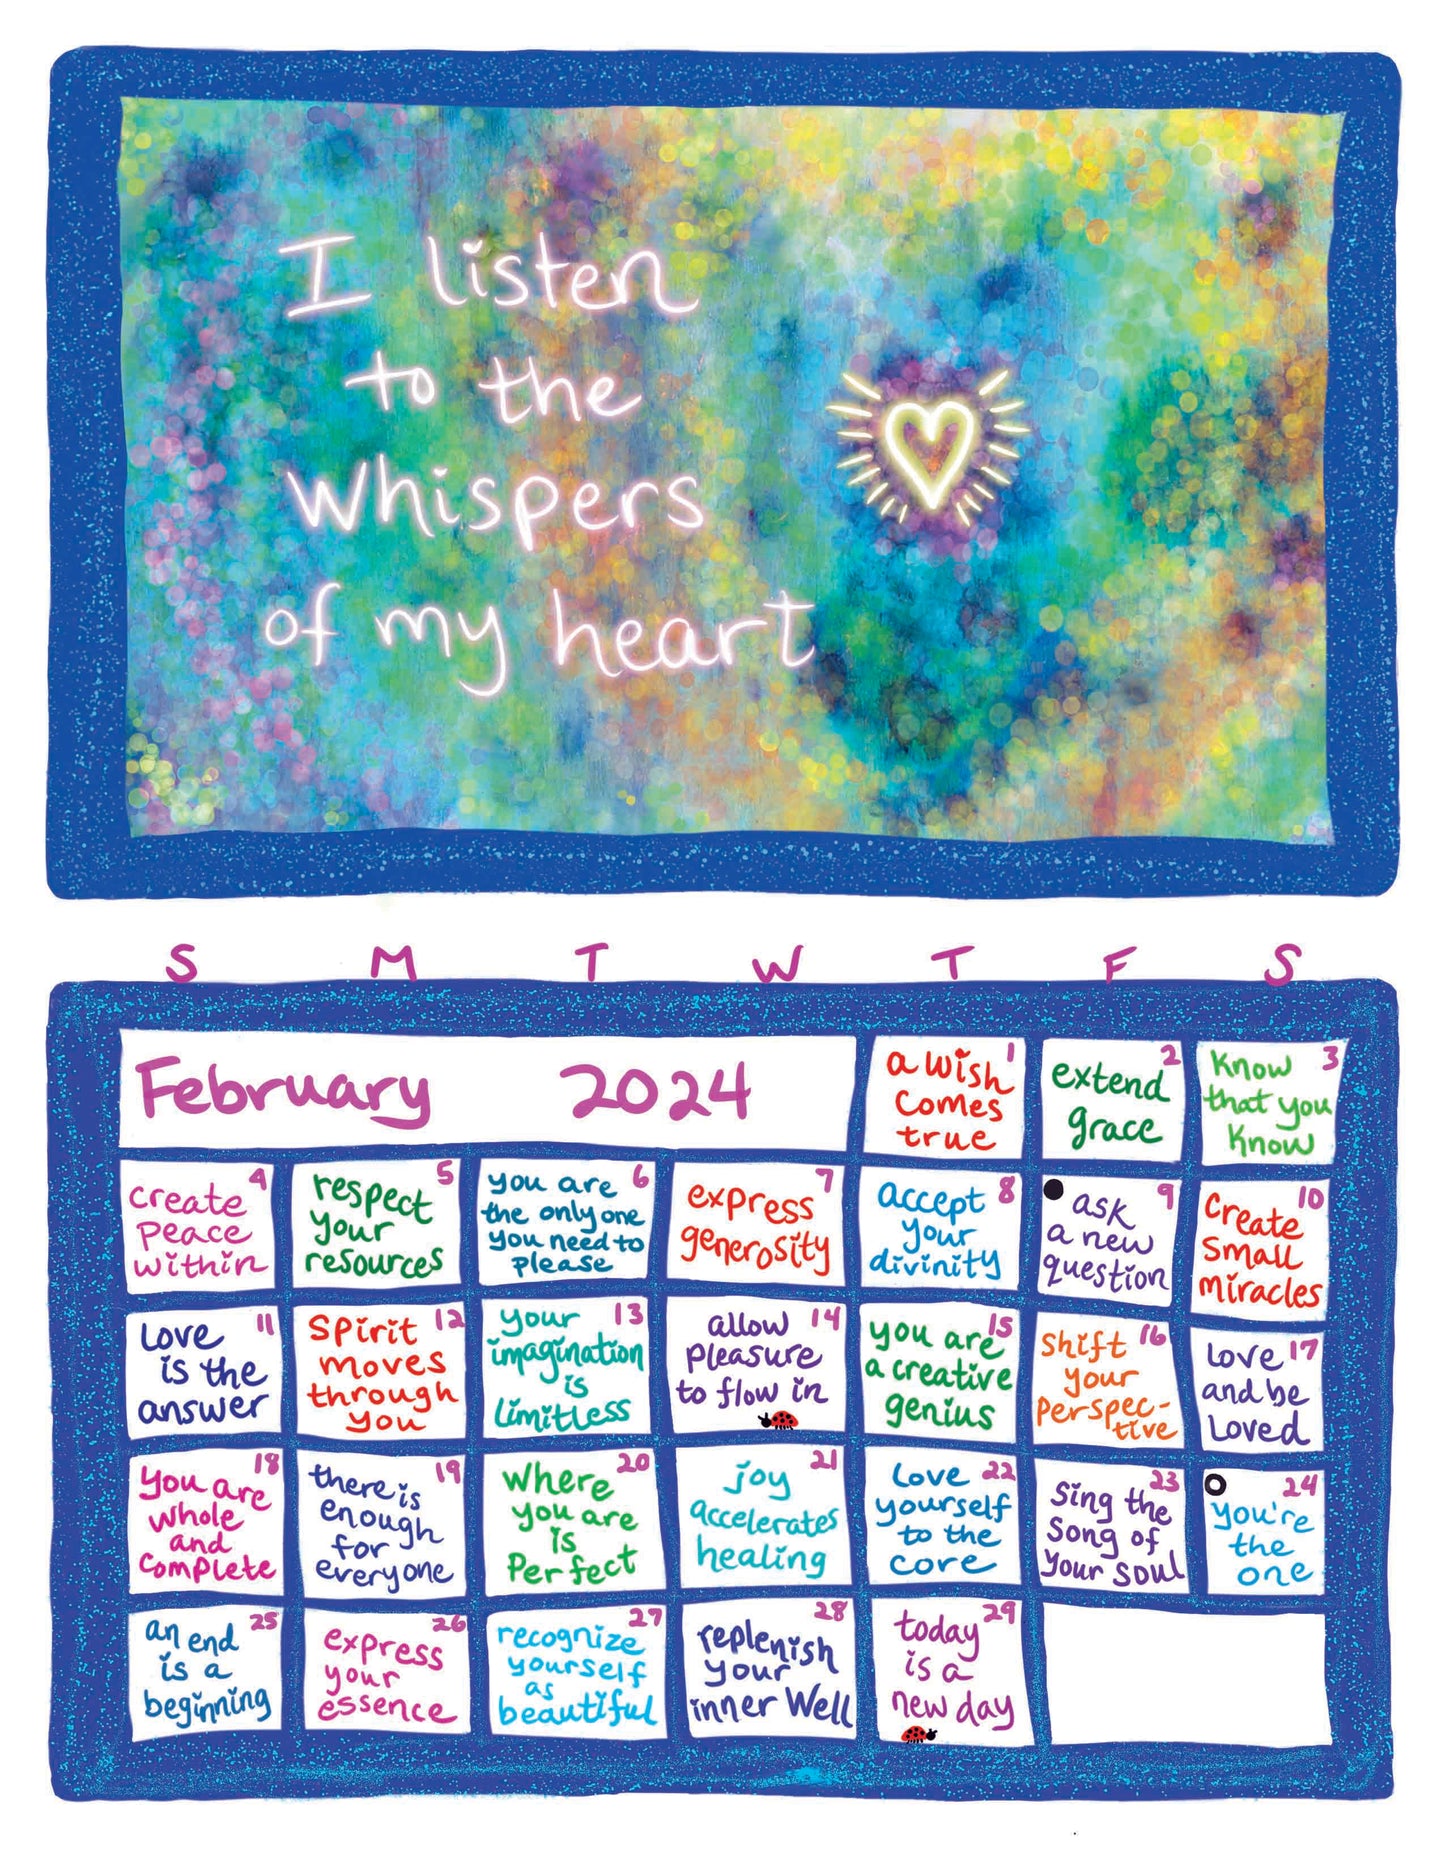 I listen
to the
whispers
of my heart
S M T W T F S
February 2024
1
a wish
comes
true
2
extend
grace
3
Know
that you
Know
4
create
peace
within
5
respect
your
resources
6
you are
the only one
you need to
please
7
express
generosity
8
accept
your
divinity
9
ask
a new
question
10
Create
small
miracles
11
Love
is the
answer
12
Spirit
moves
through
you
13
your
imagination
is
limitless
14
allow
pleasure
to flow in
15
you are
a creative
genius
16
shift
your
perspec-
tive
17
Love
and be
Loved
18
you are
whole
and
complete
19
there is
enough
for
everyone
20
where
you are
is
Perfect
21
joy
accelerates
healing
22
Love
yourself
to the
core
23
Sing the
song of
your soul
24
you're
the
one
25
an end
is a
beginning
26
express
your
essence
27
recognize
yourself
as
beautiful
28
replenish
your
inner Well
29
today
is a
new day